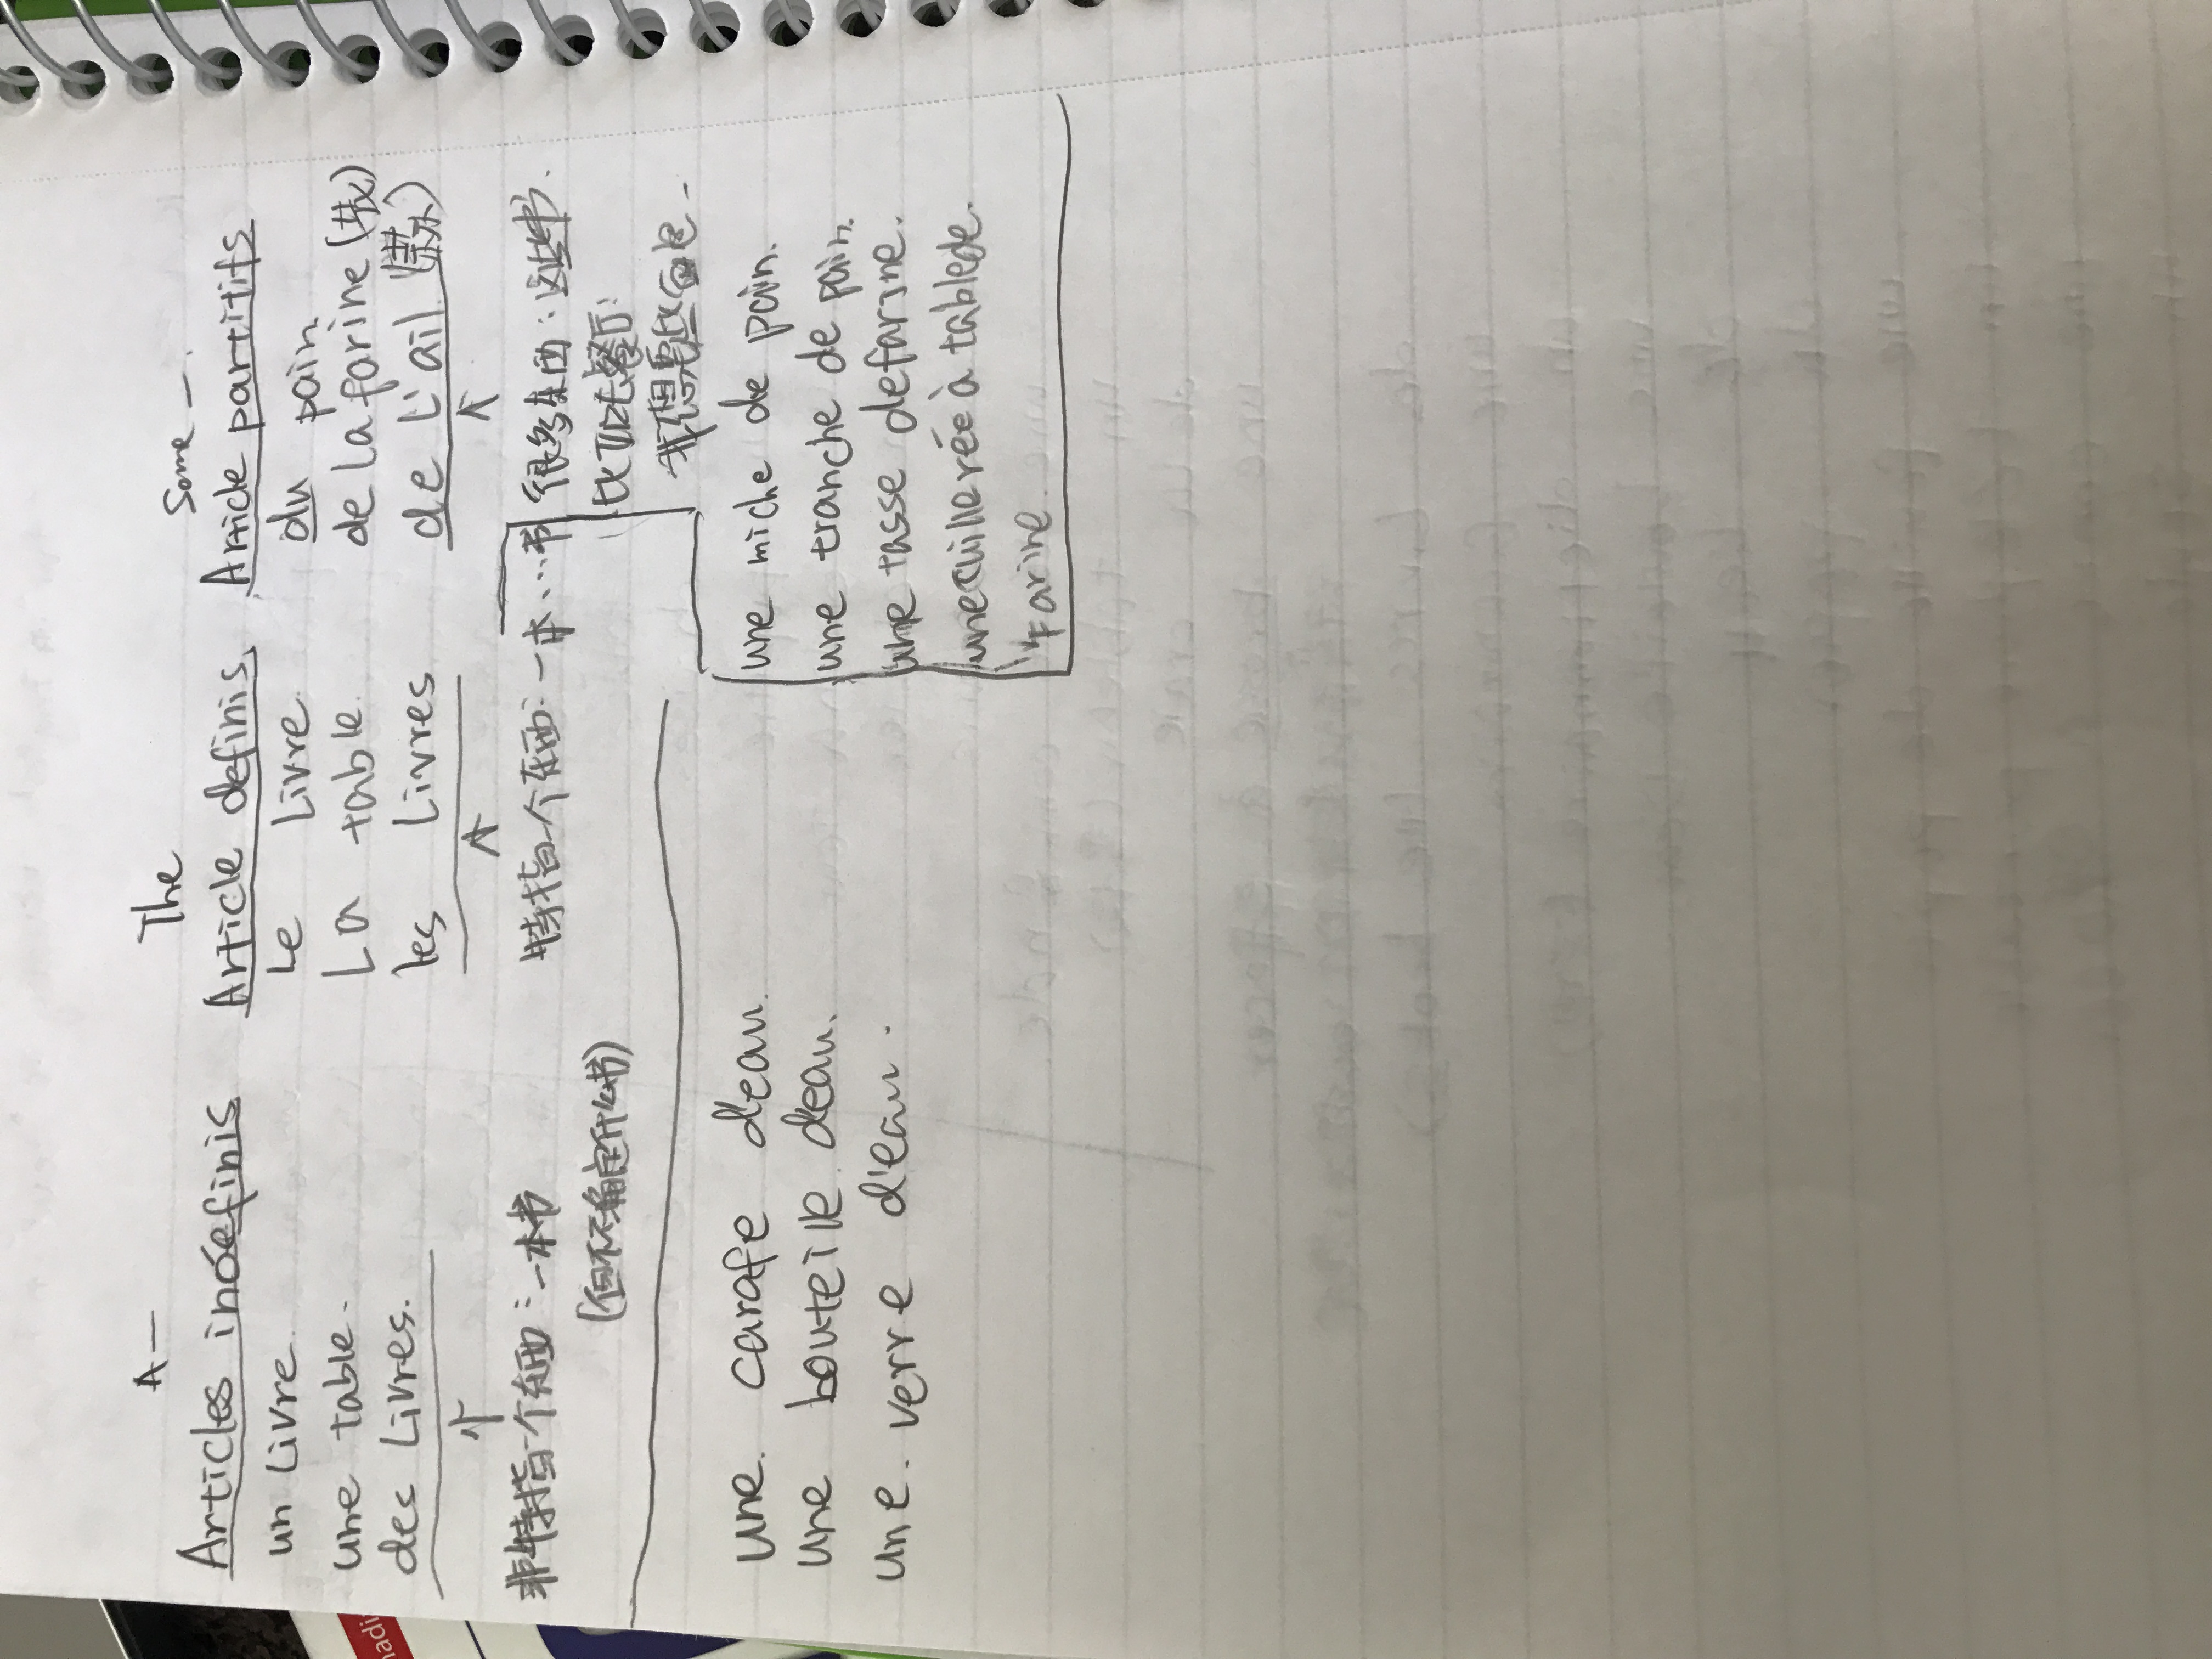 A— The Some —
Articles indéfinis Article définis Article partitifs
un Livre. Le Livre du pain
une table. La table de la farine
des Livres. les Livres de L'ail (蒜)
非特指一个东西:一本书 特指一个东西:一本...书 很多东西:这些书.
(但不确定什么书) 比如吃餐厅:
我想要些面包.
une carafe d'eau. une miche de pain.
une bouteille d'eau. une tranche de pain.
une verre d'eau. une tasse de farine.
une cuillerée à table de
farine.